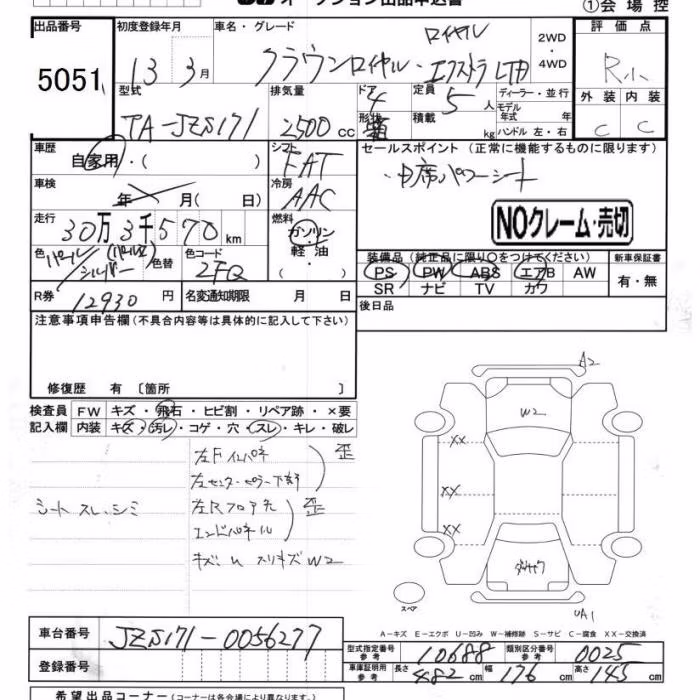 オークション出品申込書
①会場控
出品番号 5051
初度登録年月 13 3月
車名・グレード
ロイヤル
クラウンロイヤル・エクストラLTD
2WD・4WD
評価点 R小
型式 TA-JZS171
排気量 2500cc
ドア 4
形状 箱
定員 5人
積載 kg
ディーラー・並行
モデル年式 年式
ハンドル 左・右
外装 C
内装 C
車歴 自家用・( )
シフト FAT
セールスポイント (正常に機能するものに限ります)
・中席パワーシート
車検 年 月(日)
冷房 AAC
NOクレーム・売切
走行 30万3千570km
燃料 ガソリン・軽油・
色 パール/シルバー (パール2)
色替
色コード 2FQ
装備品 (純正品に限り○をつけてください)
PS PW ABS エアB AW
SR ナビ TV カワ
新車保証書 有・無
R券 12930円
名変通知期限 月 日
後日品
注意事項申告欄 (不具合内容等は具体的に記入して下さい)
修復歴 有 〔箇所 〕
検査員記入欄
FW キズ・飛石・ヒビ割・リペア跡・×要
内装 キズ・汚レ・コゲ・穴・スレ・キレ・破レ
シート スレ・シミ
左Fインパネ
左センターピラー下部
歪
左Rフロア先
エンドパネル
歪
キズ・U スリキズW2
A2
W2
XX
XX
XX
UA1
スペア
A-キズ E-エクボ U-凹み W-補修跡 S-サビ C-腐食 XX-交換済
車台番号 JZS171-0056277
登録番号
型式指定番号 参考 10688
類別区分番号 参考 0025
車庫証明用 参考 長さ 482cm 幅 176cm 高さ 145cm
希望出品コーナー (コーナーは各会場により異なります)